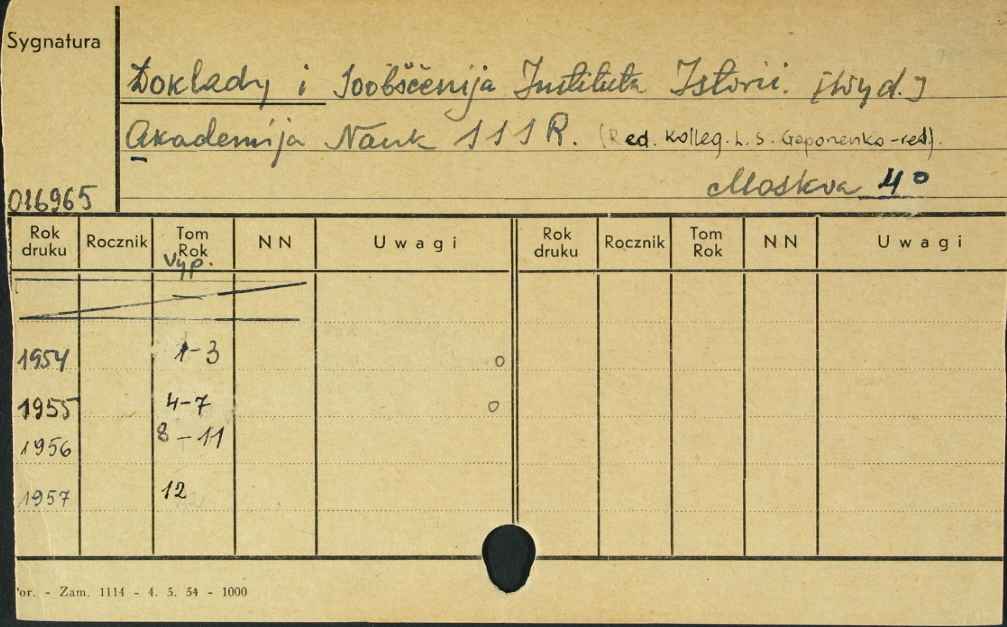 Sygnatura
Doklady i Soobščenija Instituta Istorii. [Wyd.]
Akademija Nauk SSSR. (Red. Kolleg. L. S. Gaponenko-red).
Moskva 4°
016965
Rok druku Rocznik Tom Rok NN Uwagi Rok druku Rocznik Tom Rok NN Uwagi
Vyp.
1954 1-3
1955 4-7
1956 8-11
1957 12
or. - Zam. 1114 - 4. 5. 54 - 1000